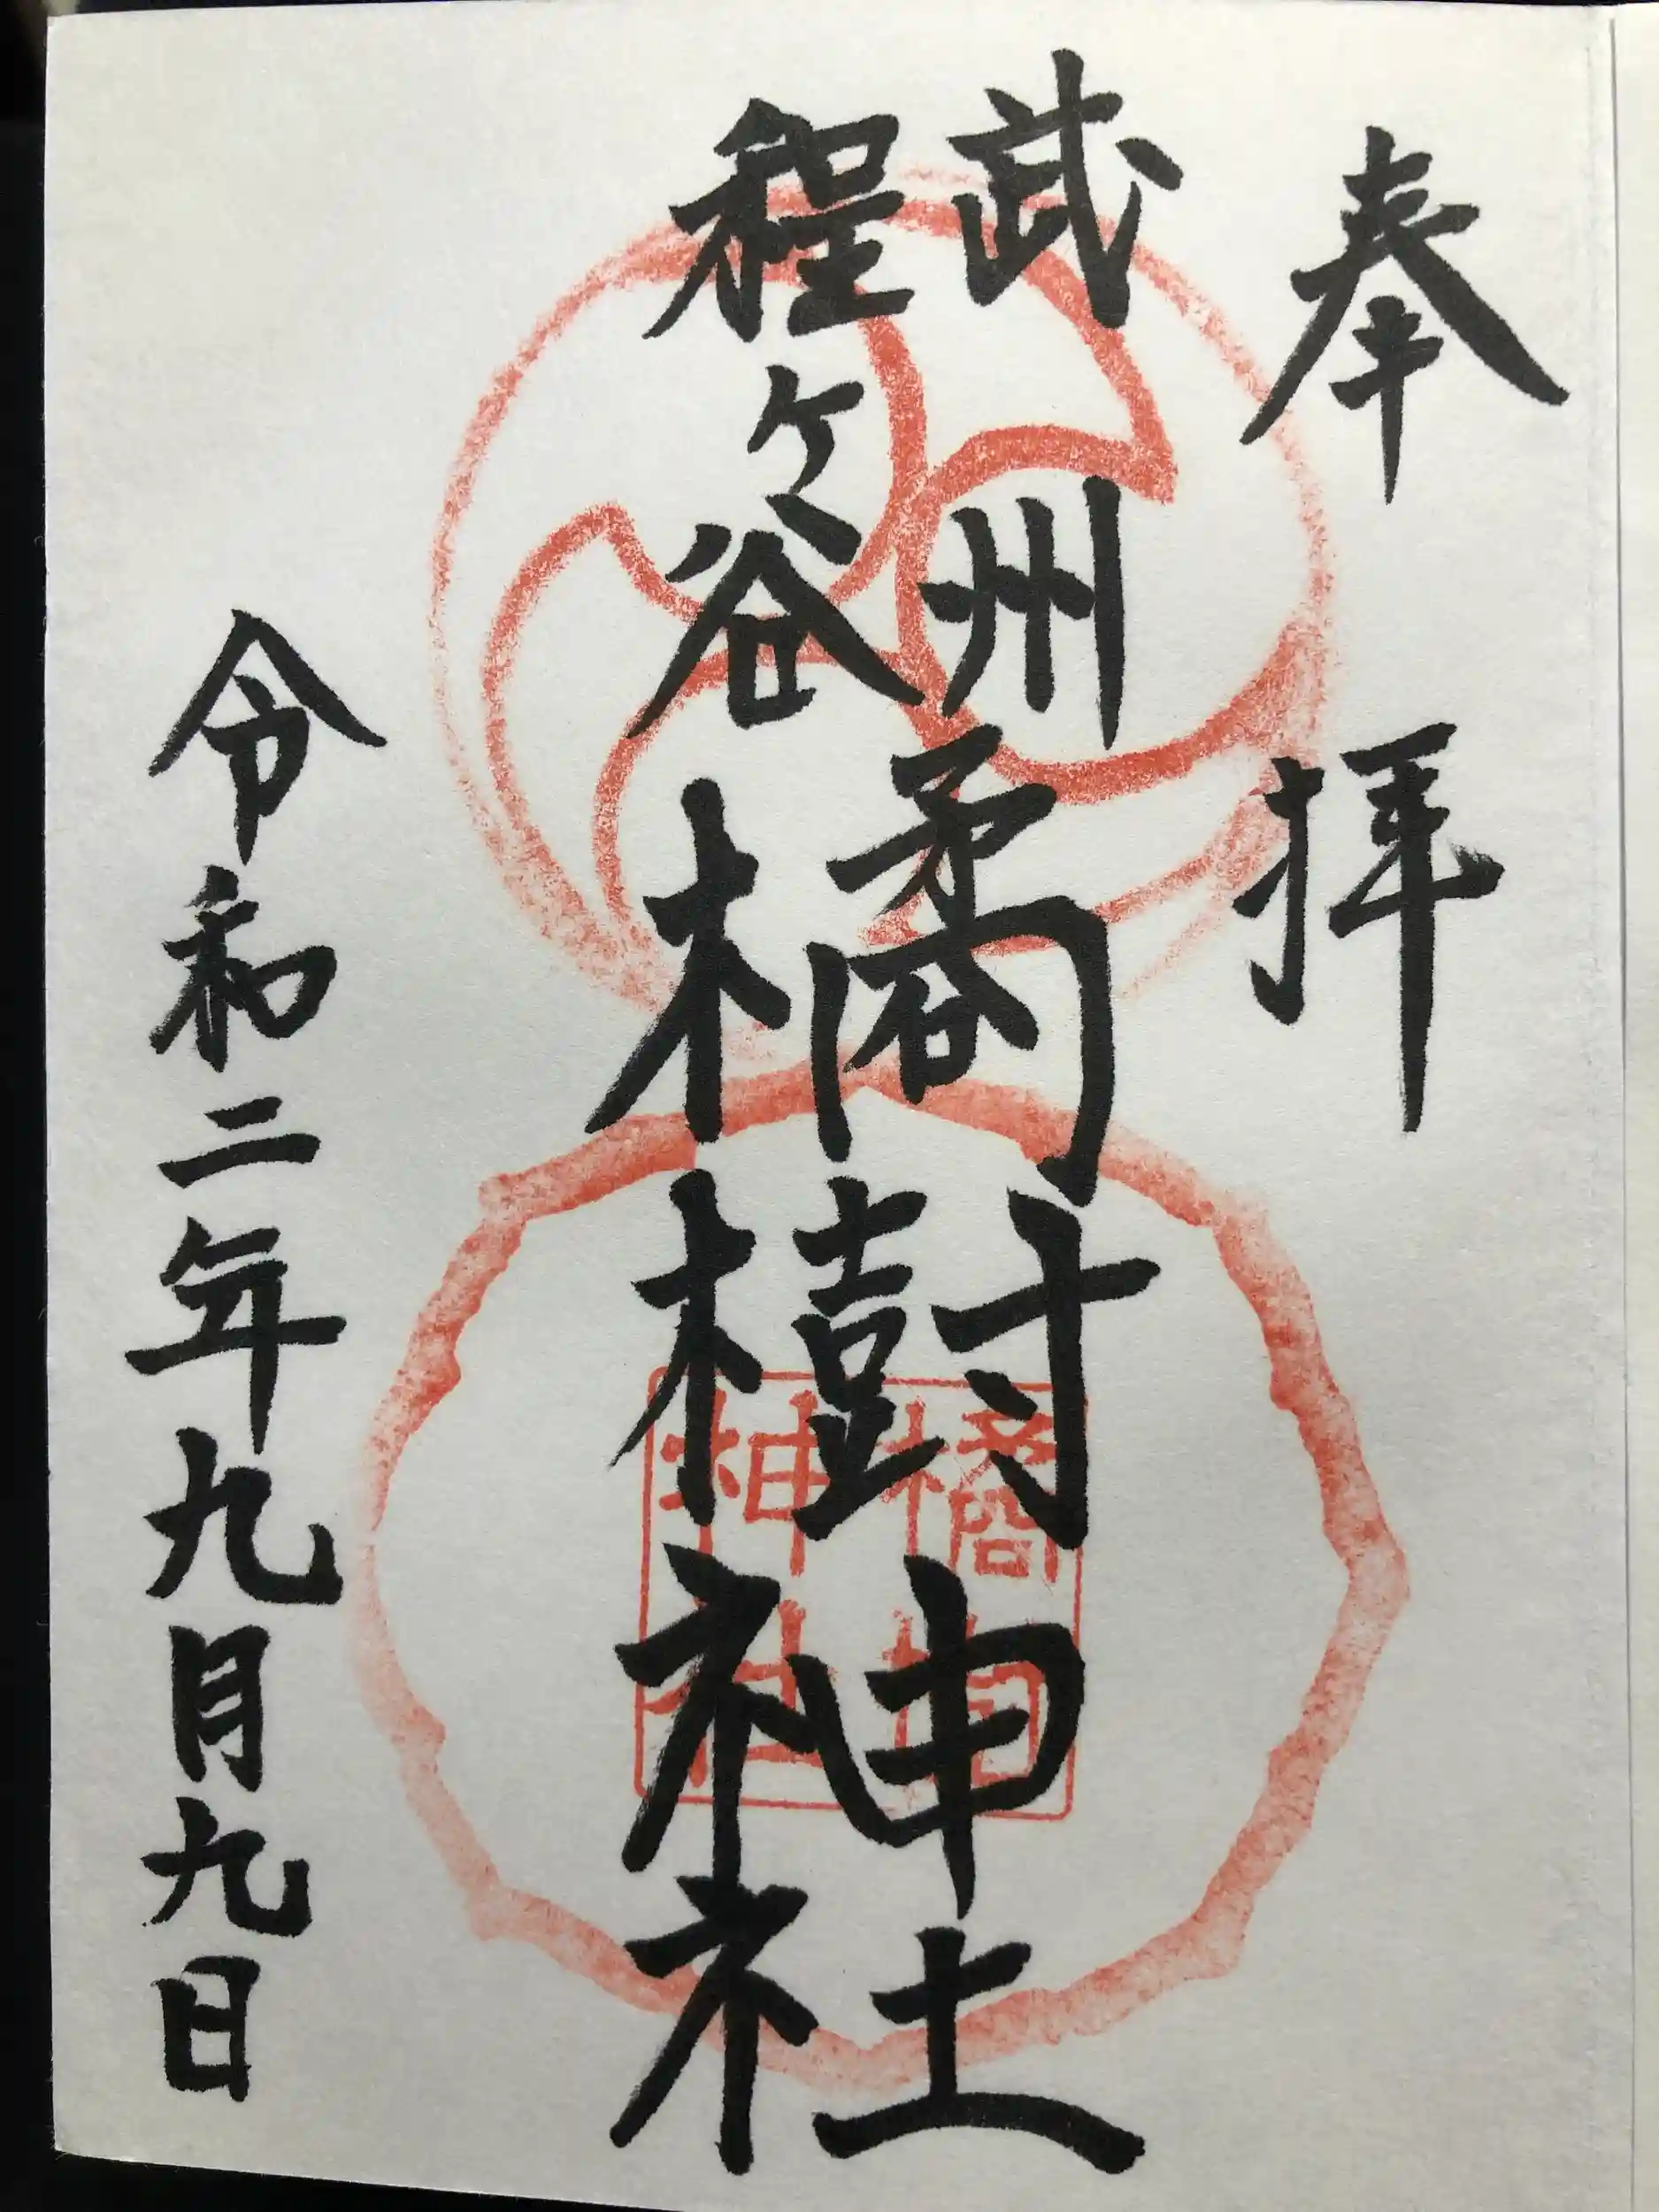 奉拝
武州
程ヶ谷
橘樹神社
令和二年九月九日
橘樹
神社